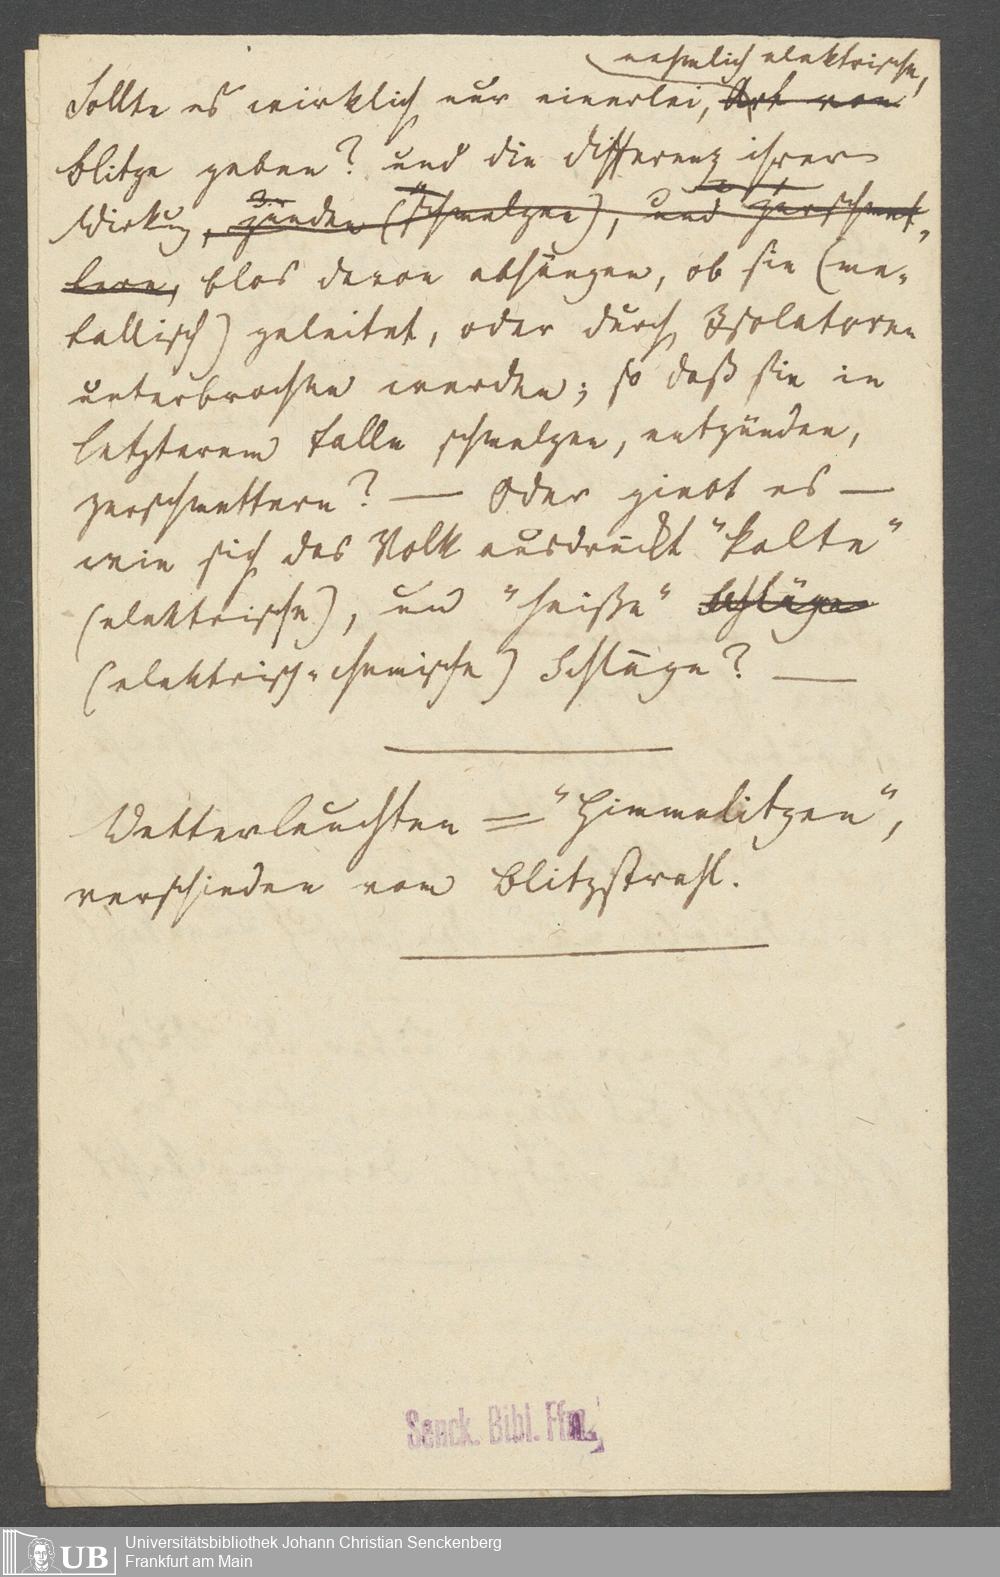 nehmlich elektrische,
Sollte es wirklich nur einerlei, Art von
Blitze geben? und die Differenz ihrer
Wirkung, zünden (schmelzen), und zerschmet-
tern, blos davon abhängen, ob sie (me-
tallisch) geleitet, oder durch Isolatoren
unterbrochen werden; so daß sie in
letzterem Falle schmelzen, entzünden,
zerschmettern? — Oder giebt es —
wie sich das Volk ausdrückt "kalte"
(elektrische), und "heiße" Schläge
(elektrisch-chemische) Schläge? —
Wetterleuchten = "Himmelitzen",
verschieden vom Blitzstrahl.
Senck. Bibl. Ffm.
UB
Universitätsbibliothek Johann Christian Senckenberg
Frankfurt am Main